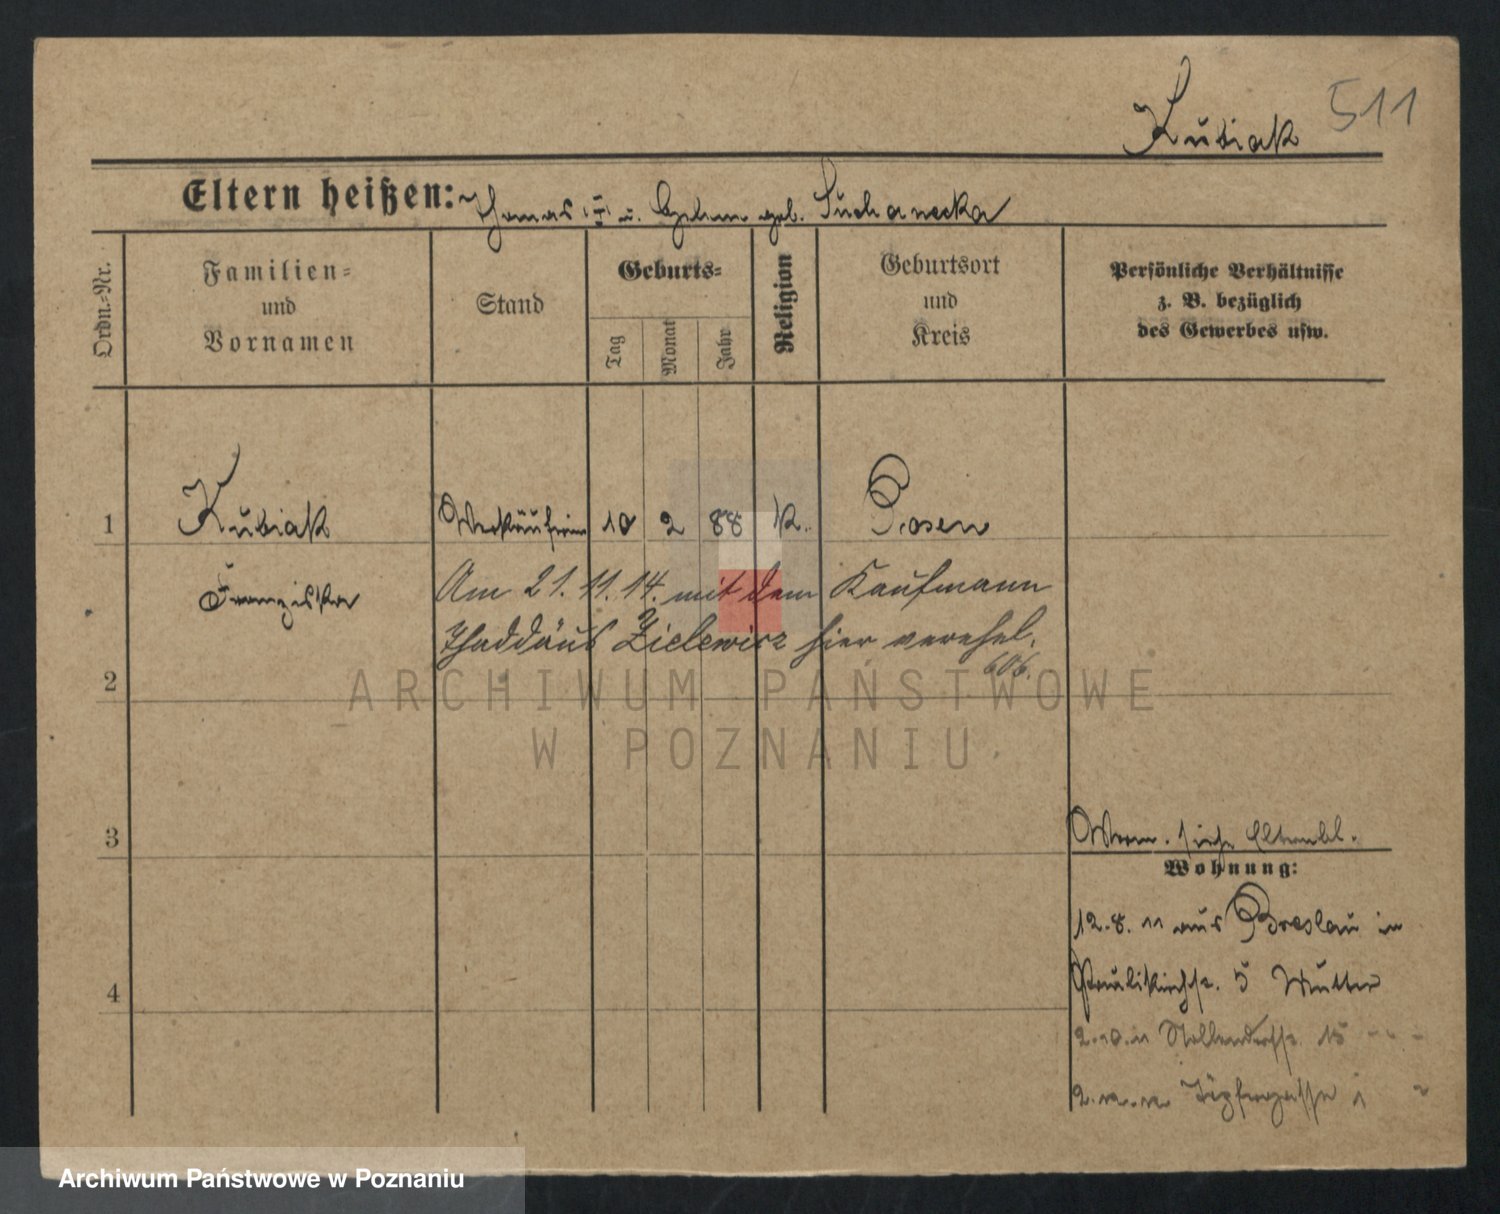 Kubiak 511
Eltern heißen: Thomas u. geb. Suchanecka
Ordn.=Nr.
Familien=
und
Vornamen
Stand
Geburts=
Tag
Monat
Jahr
Religion
Geburtsort
und
Kreis
Persönliche Verhältnisse
z. B. bezüglich
des Gewerbes usw.
1 Kubiak Verkäuferin 10 2 88 k. Posen
Franziska
Am 21. 11. 14. mit dem Kaufmann
Thaddäus Zielewicz hier verehel.
606.
2
3
4
Verm. siehe Elternbl.
Wohnung:
12.8. 11 aus Breslau in
Paulikirchstr. 5 Mutter
2.10.11 Nollendorfstr. 15
Töpfergasse 1
ARCHIWUM PAŃSTWOWE
W POZNANIU
Archiwum Państwowe w Poznaniu